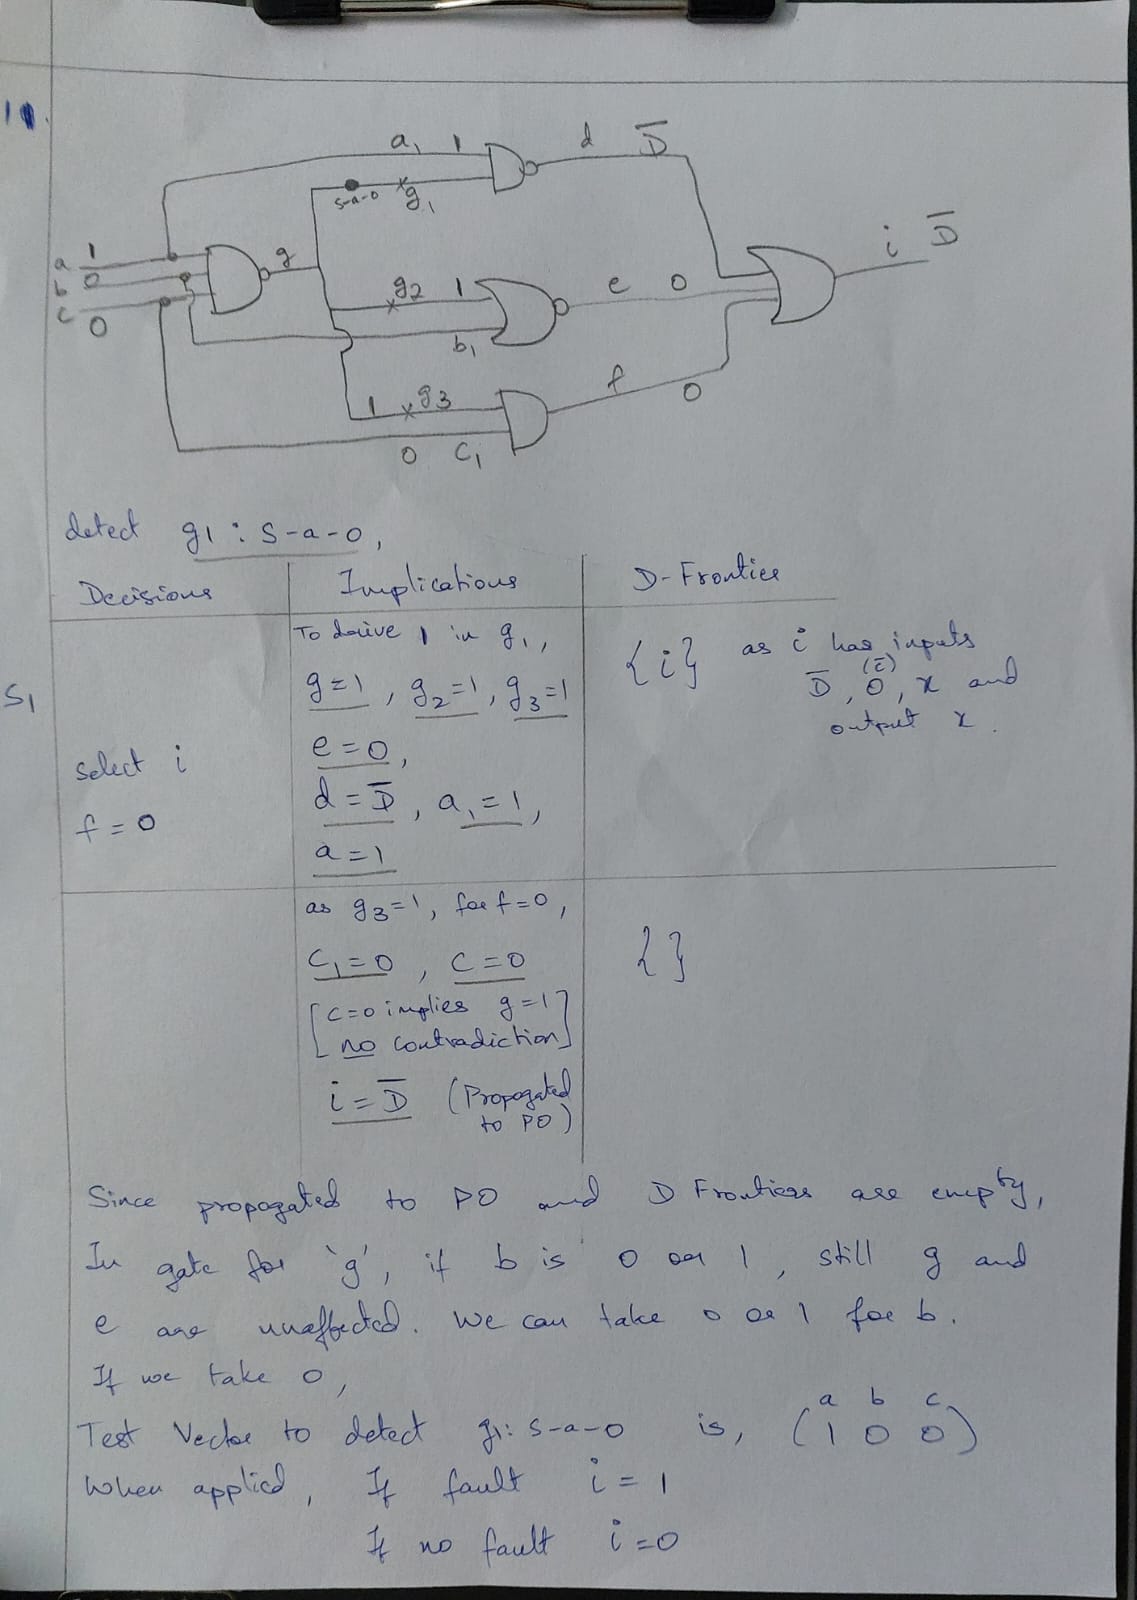 19.
a, 1 d D̅
s-a-0 g1
a 1 g i D̅
b 0
c 0
g2 1 e 0
b1
1 g3 f 0
0 C1
detect g1 : s-a-0,
Decisions Implications D-Frontier
S1
select i
f = 0
To drive 1 in g1,
g=1, g2=1, g3=1
e=0,
d=D̅, a1=1,
a=1
{i} as i has inputs
(e)
D̅, 0, x and
output x.
as g3=1, for f=0,
C1=0, C=0
[C=0 implies g=1
no contradiction]
i=D̅ (Propogated
to PO)
{ }
Since propogated to PO and D Frontiers are empty,
In gate for 'g', if b is 0 or 1, still g and
e are unaffected. We can take 0 or 1 for b.
If we take 0,
a b c
Test Vector to detect g1: s-a-0 is, (1 0 0)
When applied, If fault i = 1
If no fault i=0